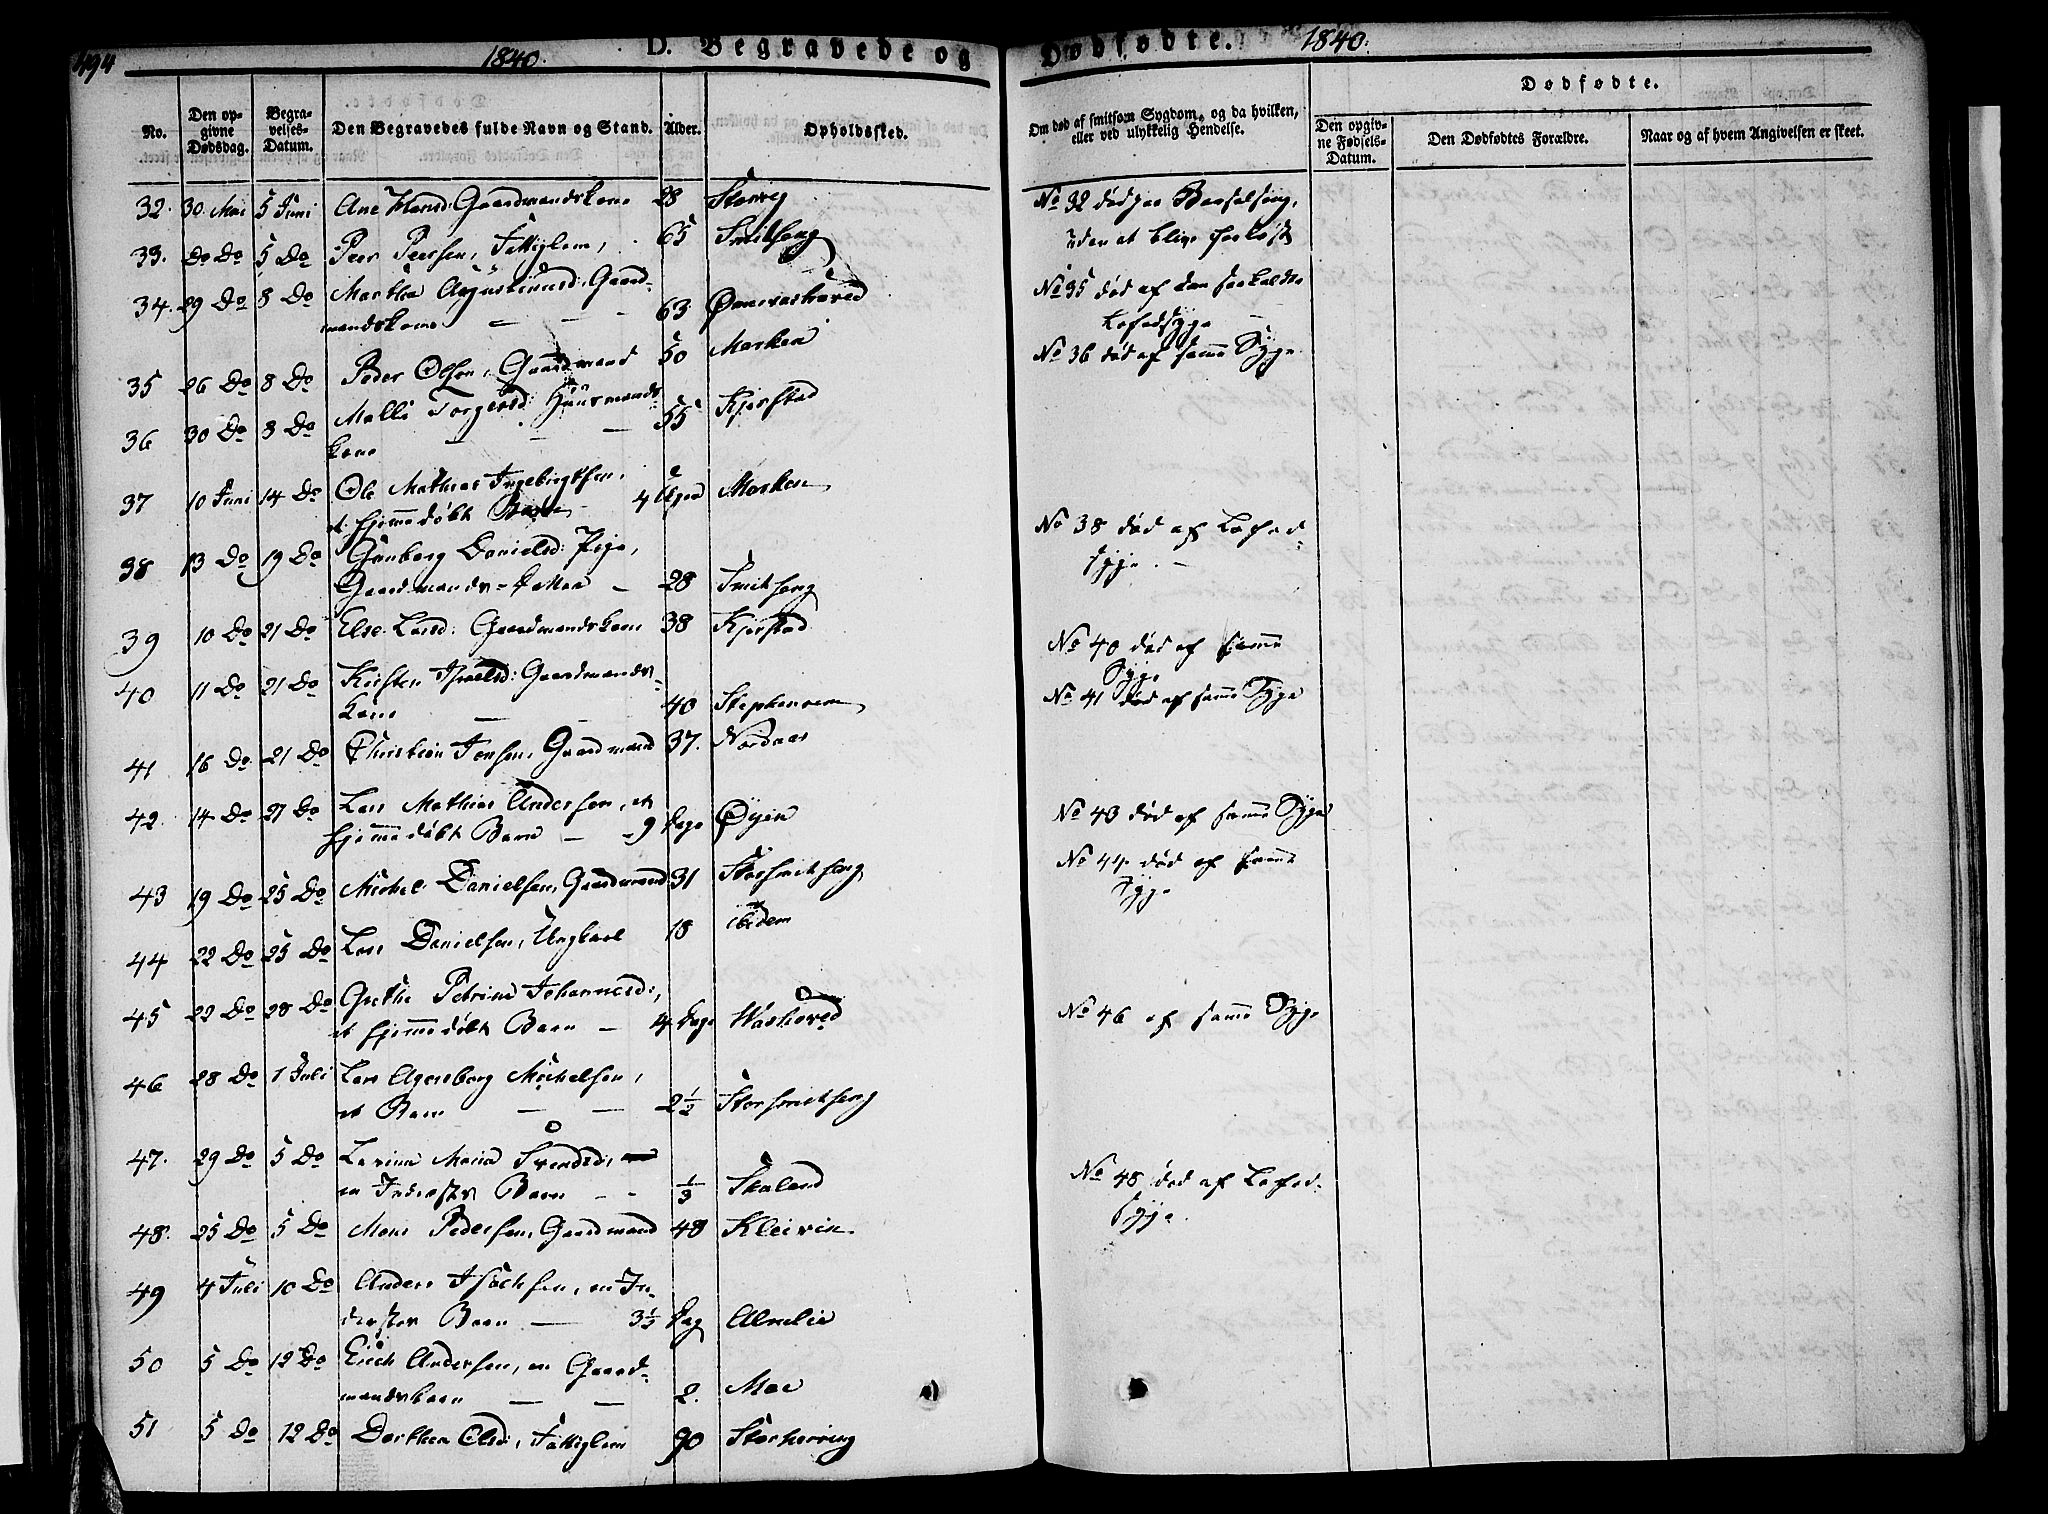 494
1840.
D. Begravede og
Dødfødte.
1840.
No.
Den op-
givne
Dødsdag.
Begra-
velses-
Datum.
Den Begravedes fulde Navn og Stand.
Alder.
Opholdssted.
Om død af smitsom Sygdom, og da hvilken,
eller ved ulykkelig Hendelse.
Dødfødte.
Den opgiv-
ne Fødsels-
Datum.
Den Dødfødtes Forældre.
Naar og af hvem Angivelsen er skeet.
32. 30 Mai 5 Juni Ane Hansd: Gaardmandskone 28
33. Do Do 5 Do Peer Peersen, Fattiglem, 65 Smitsong
34. 29 Do 8 Do Martha Augustinusd: Gaard-
mandskone — — - 63
35 26 Do 8 Do Peder Olsen, Gaardmand 50 Marken
36 30 Do 8 Do Malli Torgersd: Huusmands-
kone — — — 55 Kjerstad
37 10 Juni 14 Do Ole Mathias Ingebrigtsen,
et hjemmedøbt Barn 4 Uger Marken
38 13 Do 19 Do Gunborg Danielsd: Pige,
Gaardmands-Datter - 28 Smitsong
39 10 Do 21 Do Else Larsd: Gaardmandskone 38 Kjerstad
40 11 Do 21 Do Kirsten Israelsd: Gaardmands-
kone — — 40
41 16 Do 21 Do Christian Jensen, Gaardmand 37. Nordaas
42. 14 Do 21 Do Lars Mathias Andersen, et
hjemmedøbt Barn — 9 Dage Øyen
43 19 Do 25 Do Michel Danielsen, Gaardmand 31 Storsmitsong
44 22 Do 25 Do Lars Danielsen, Ungkarl 18 ibidem
45 22 Do 28 Do Grethe Petrine Johannesd:,
et hjemmedøbt Barn — 4 Dage Washoved
46 28 Do 1 Juli Lars Agersborg Michelsen,
et Barn — — 2½ Storsmitsong
47. 29 Do 5 Do Lavina Maria Svendsd:
en Inderstes Barn - - ⅓ Skaland
48. 25 Do 5 Do Mons Pedersen, Gaardmand 48 Kleivin
49 4 Juli 10 Do Anders Isachsen, en In-
derstes Barn — 3½ Dag
50 5 Do 12 Do Erich Andersen, en Gaard-
mandsbarn — — 2. Moe
51 5 Do 12 Do Dorthea Olsd:, Fattiglem 90
No 32 død paa Barselseng,
uden at blive forløst
No 35 død af den saakaldte
Lofodsyge
No 36 død af samme Syge
No 38 død af Lofod-
syge. -
No 40 død af samme
Syge
No 41 død af samme Syge
No 43 død af samme Syge
No 44 død af samme
Syge
No 46 af samme Syge
No 48 død af Lofod-
syge.